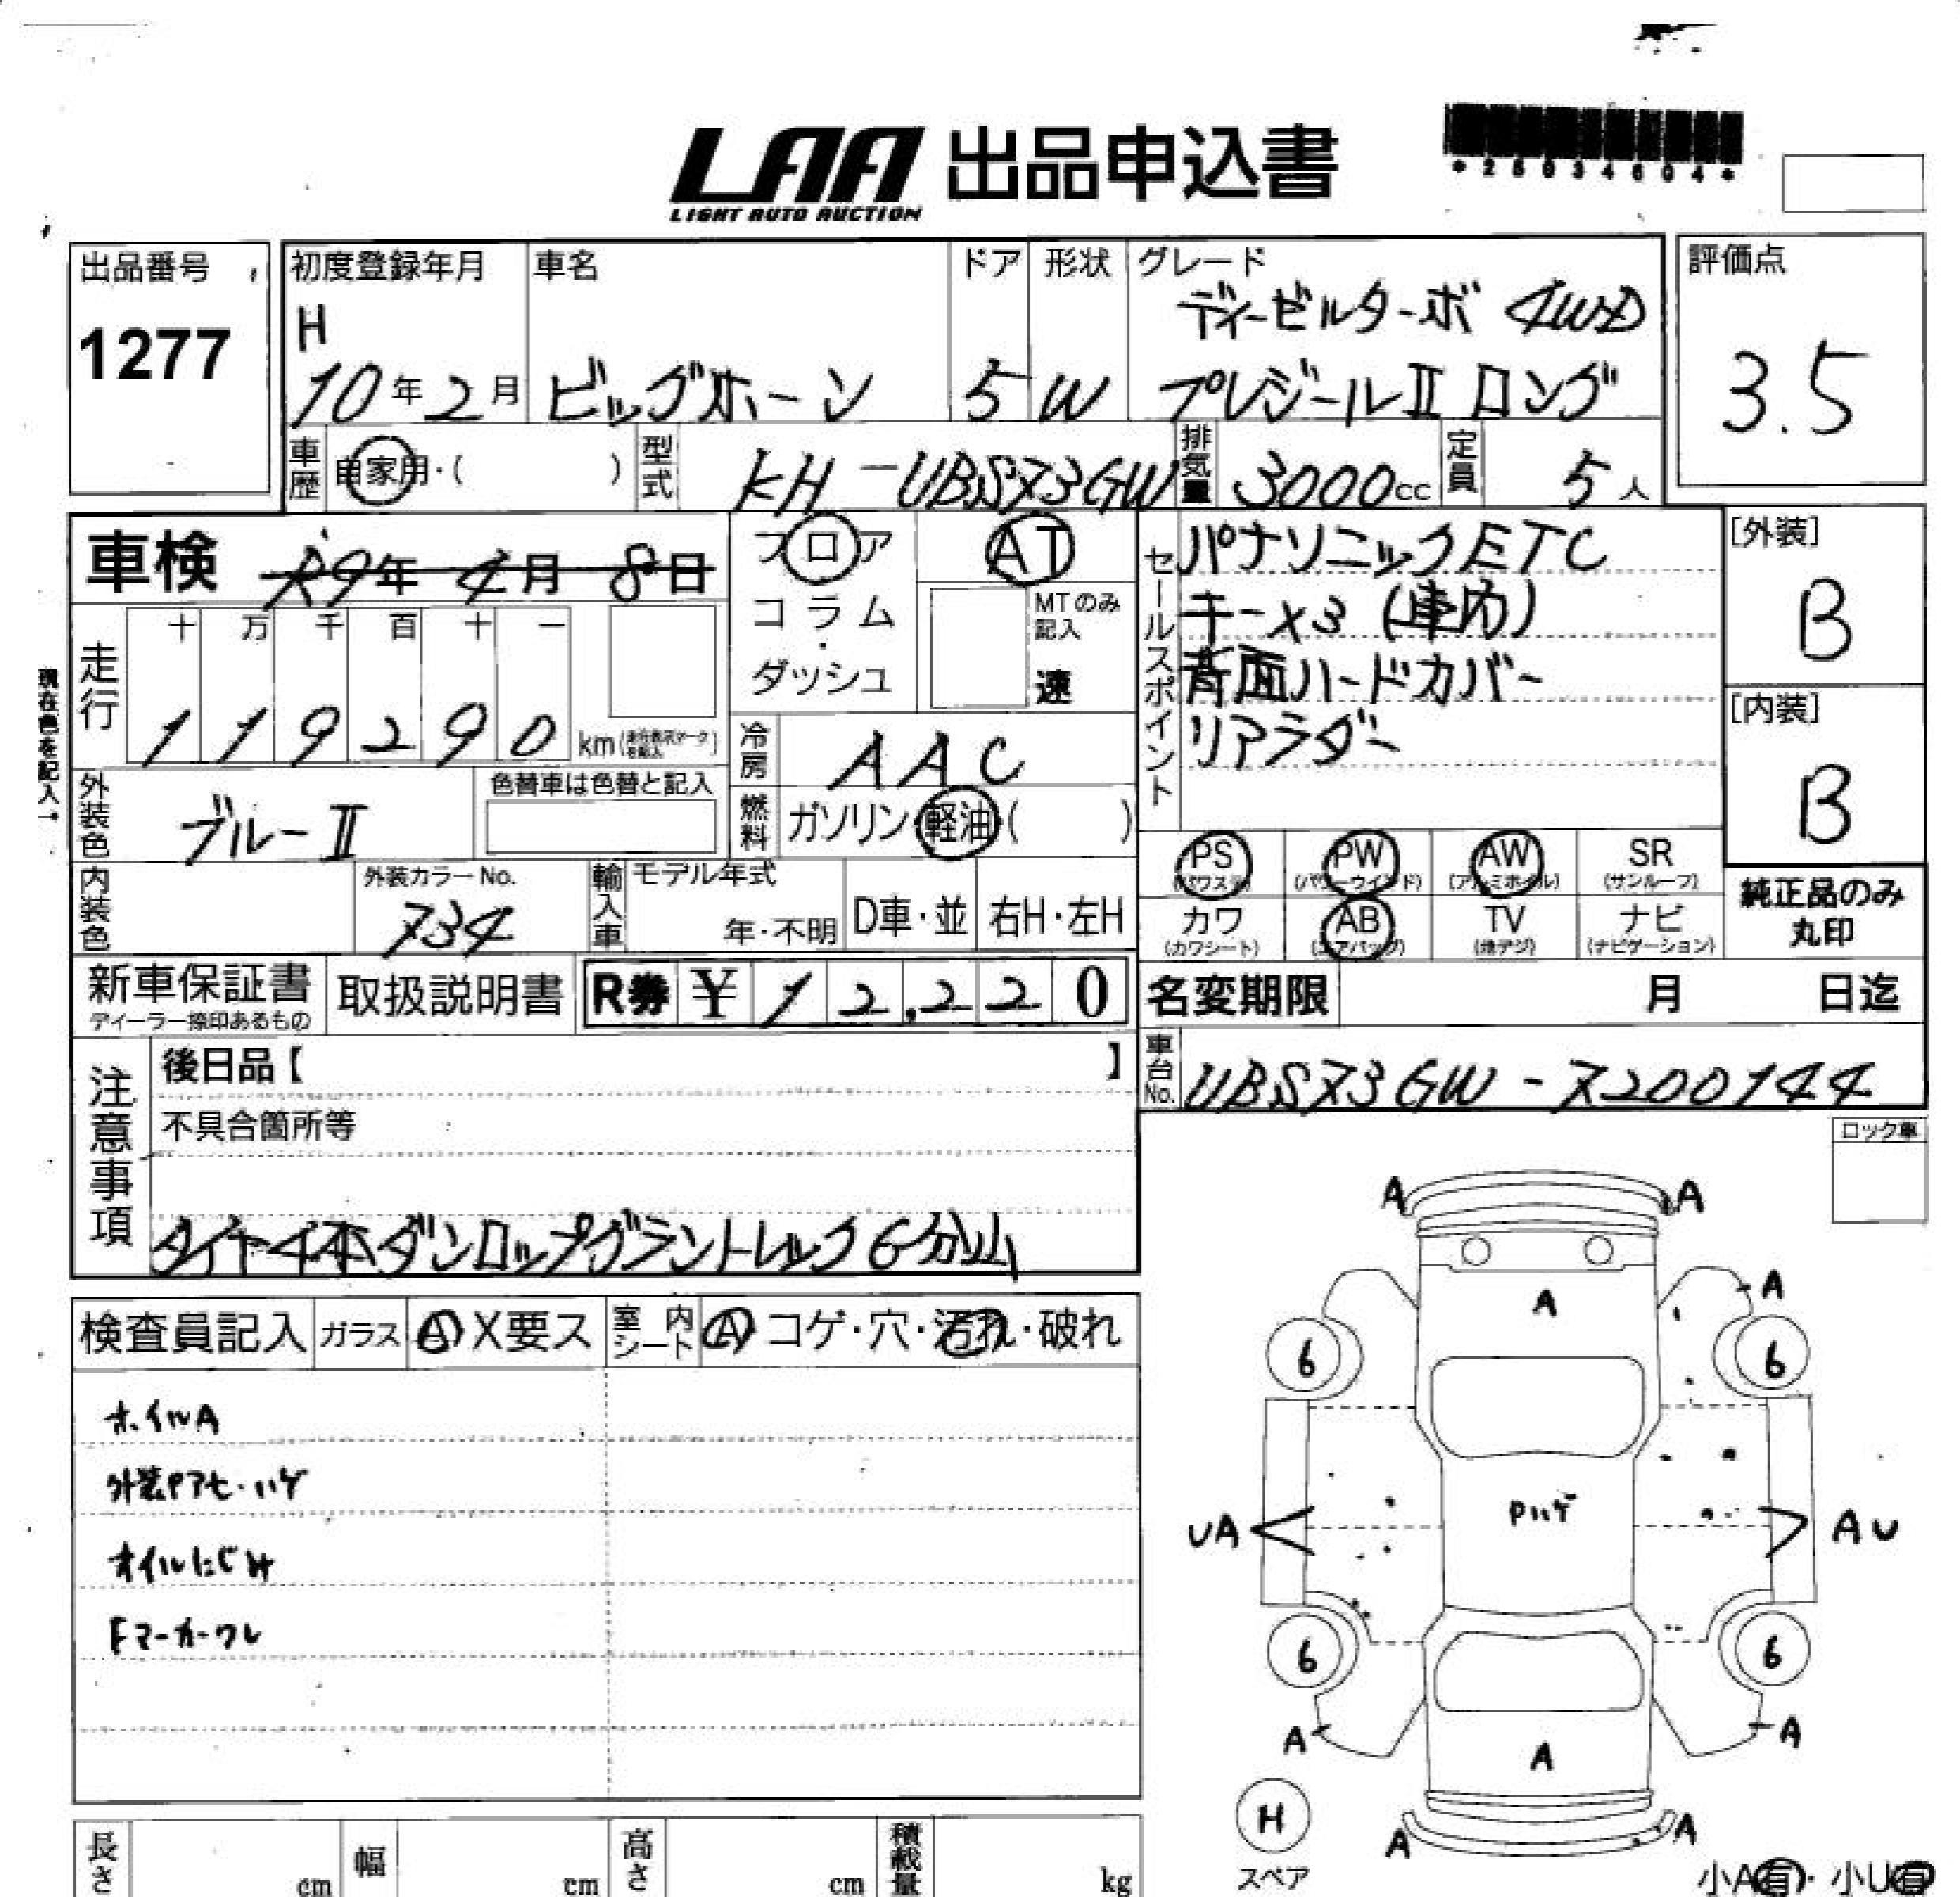 LAA 出品申込書
LIGHT AUTO AUCTION
*25034604*
出品番号
1277
初度登録年月
H
10年2月
車名
ビッグホーン
ドア
5
形状
W
グレード
ディーゼルターボ 4WD
プレジールⅡ ロング
評価点
3.5
車歴
自家用・( )
型式
KH-UBS73GW
排気量
3000cc
定員
5人
車検
R9年4月8日
フロア
コラム
・
ダッシュ
AT
MTのみ
記入
速
セールスポイント
パナソニックETC
キー×3 (車内)
背面ハードカバー
リアラダー
[外装]
B
[内装]
B
現在色を記入→
走行
十 万 千 百 十 一
1 1 9 2 9 0 km
冷房
AAC
外装色
ブルーⅡ
色替車は色替と記入
燃料
ガソリン・軽油・( )
内装色
外装カラーNo.
734
輸入車
モデル年式
年・不明
D車・並
右H・左H
PS
(パワステ)
PW
(パワーウインド)
AW
(アルミホイル)
SR
(サンルーフ)
カワ
(カワシート)
AB
(エアバッグ)
TV
(地デジ)
ナビ
(ナビゲーション)
純正品のみ
丸印
新車保証書
ディーラー捺印あるもの
取扱説明書
R券 ¥ 12,220
名変期限
月 日迄
車台No.
UBS73GW-7200144
注意事項
後日品【 】
不具合箇所等
タイヤ4本ダンロップグラントレック6分山
ロック車
検査員記入
ガラス
A X要ス
室内シート
A コゲ・穴・汚れ・破れ
ホイルA
外装Pアセ・ハゲ
オイルにじみ
Fマーカーワレ
A A
A
A
6 6
Pハゲ
UA AU
6 6
A A
A
H
スペア
A A
小A有・小U有
長さ
cm
幅
cm
高さ
cm
積載量
kg